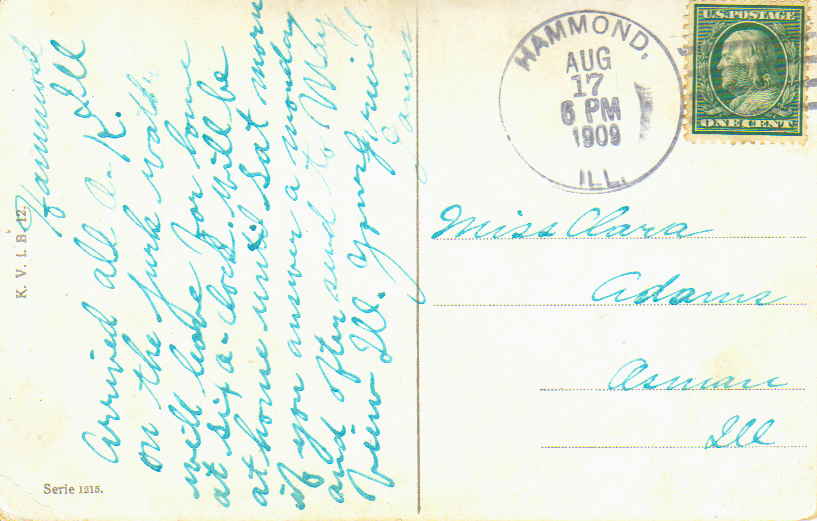 Hammond
Ill
Arrived all O. K.
on the junk
will leave for home
at six o-clock. Will be
at home until Sat morn
if you answer a monday
and after send to May
view Ill. Your friend
HAMMOND,
AUG
17
6 PM
1909
ILL.
U.S. POSTAGE
ONE CENT
Miss Clara
Adams
Osman
Ill
K. V. i. B. 12.
Serie 1315.